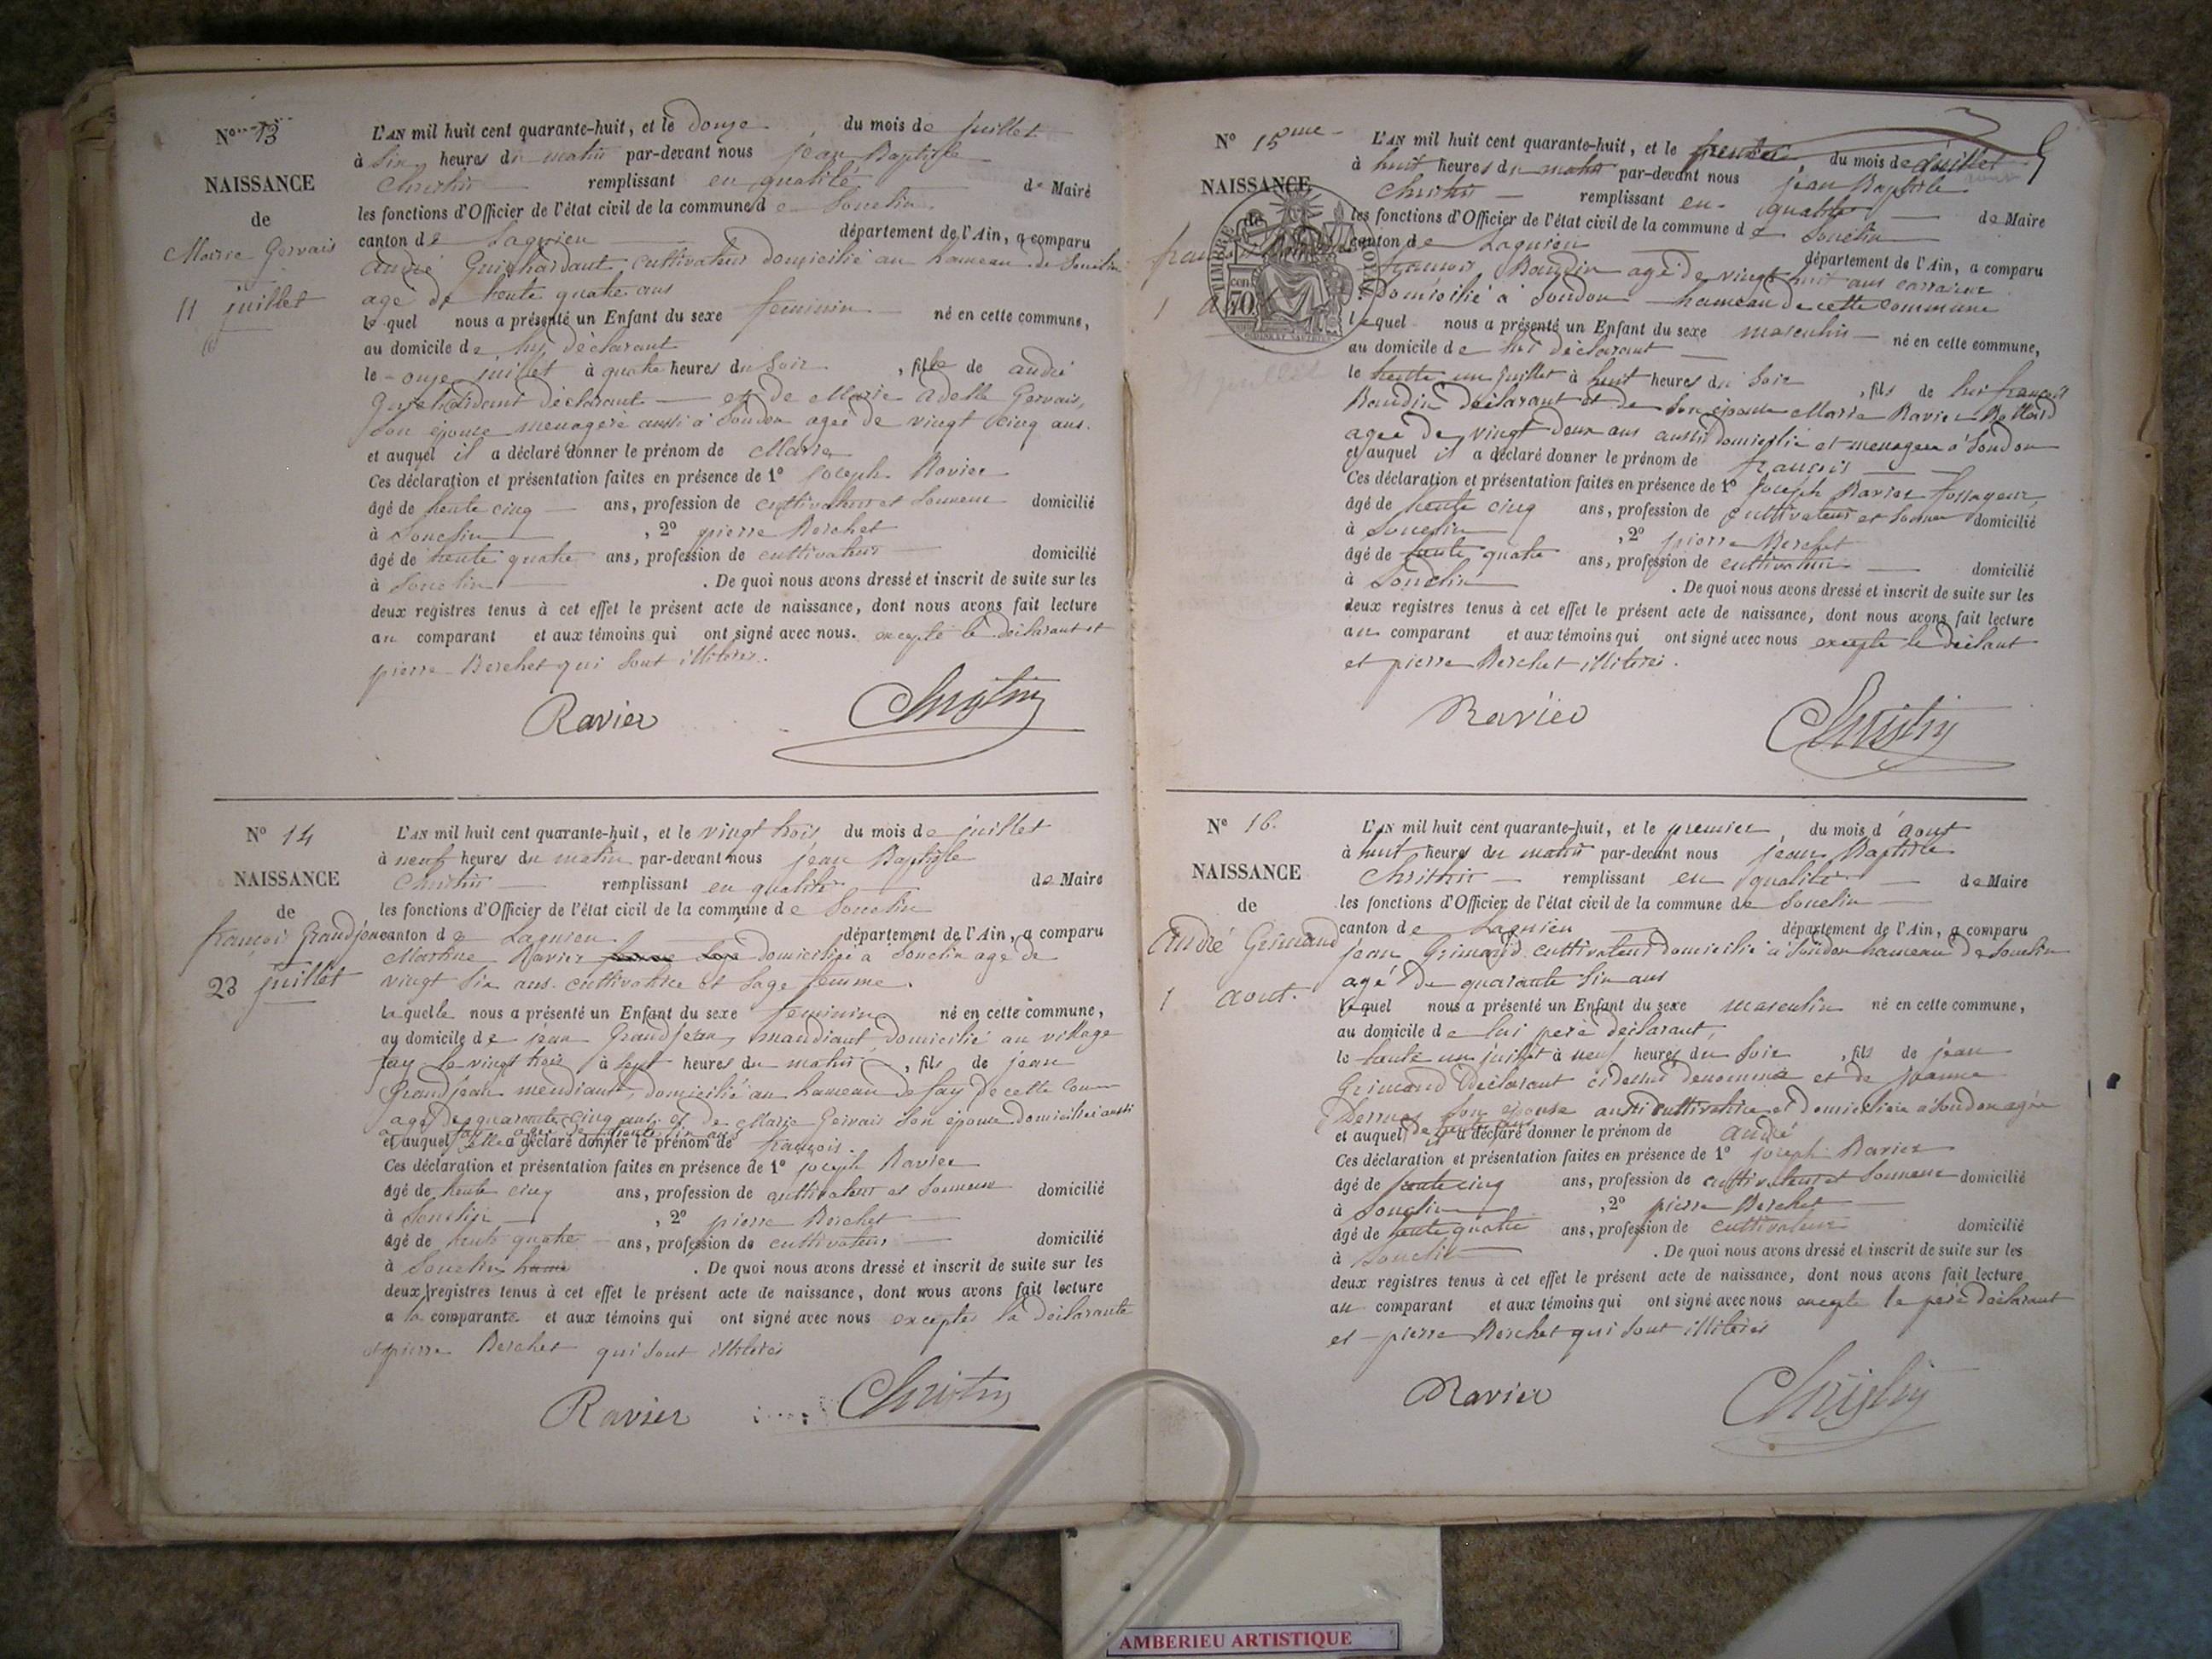 N° 13
NAISSANCE
de
Marie Gervais
11 juillet
L'AN mil huit cent quarante-huit, et le douze du mois de juillet
à six heures du matin par-devant nous jean Baptiste
Christin remplissant en qualité de Maire
les fonctions d'Officier de l'état civil de la commune de Souclin
canton de Lagnieu département de l'Ain, a comparu
andré cultivateur domicilié au hameau de Souclin
agé de trente quatre ans
lequel nous a présenté un Enfant du sexe feminin né en cette commune,
au domicile de lui déclarant
le onze juillet à quatre heures du soir, fille de andré
déclarant et de Marie Adelle Gervais,
son épouse menagère aussi à Soudon agee de vingt cinq ans.
et auquel il a déclaré donner le prénom de Marie
Ces déclaration et présentation faites en présence de 1° joseph Ravier
âgé de trente cinq ans, profession de cultivateur et sonneur domicilié
à Souclin, 2° pierre Berchet
âgé de trente quatre ans, profession de cultivateur domicilié
à Souclin. De quoi nous avons dressé et inscrit de suite sur les
deux registres tenus à cet effet le présent acte de naissance, dont nous avons fait lecture
au comparant et aux témoins qui ont signé avec nous. excepté le déclarant et
pierre Berchet qui sont illiterés.
Ravier Christin
N° 14
NAISSANCE
de
françois Grandjean
23 juillet
L'AN mil huit cent quarante-huit, et le vingt trois du mois de juillet
à neuf heures du matin par-devant nous jean Baptiste
Christin remplissant en qualité de Maire
les fonctions d'Officier de l'état civil de la commune de Souclin
canton de Lagnieu département de l'Ain, a comparu
Martine Ravier domiciliée à Souclin age de
vingt six ans. cultivatrice et sage femme.
laquelle nous a présenté un Enfant du sexe feminin né en cette commune,
au domicile de jean Grandjean mandiant domicilié au village
fay le vingt trois à sept heures du matin, fils de jean
Grandjean mendiant, domicilié au hameau de fay de cette com
agé de quarante cinq ans. et de Marie Gervais son épouse domiciliée aussi
a fay agee de trente six ans
et auquel elle a déclaré donner le prénom de françois.
Ces déclaration et présentation faites en présence de 1° joseph Ravier
âgé de trente cinq ans, profession de cultivateur et sonneur domicilié
à Souclin, 2° pierre Berchet
âgé de trente quatre ans, profession de cultivateur domicilié
à Souclin hame. De quoi nous avons dressé et inscrit de suite sur les
deux registres tenus à cet effet le présent acte de naissance, dont nous avons fait lecture
a la comparante et aux témoins qui ont signé avec nous exceptés la déclarante
et pierre Berchet qui sont illiterés
Ravier Christin
N° 15me
NAISSANCE
de
TIMBRE ROYAL
70
L'AN mil huit cent quarante-huit, et le du mois de juillet
à huit heures du matin par-devant nous jean Baptiste
Christin remplissant en qualité de Maire
les fonctions d'Officier de l'état civil de la commune de Souclin
canton de Lagnieu département de l'Ain, a comparu
françois Baudin agé de vingt huit ans
domicilié à Soudon hameau de cette commune
lequel nous a présenté un Enfant du sexe masculin né en cette commune,
au domicile de lui déclarant
le trente un juillet à huit heures du soir, fils de lui françois
Baudin déclarant et de son épouse Marie Ravier
agee de vingt deux ans aussi domiciliée et menagere à Soudon
et auquel il a déclaré donner le prénom de françois
Ces déclaration et présentation faites en présence de 1° joseph Ravier fossoyeur
âgé de trente cinq ans, profession de cultivateur et sonneur domicilié
à Souclin, 2° pierre Berchet
âgé de trente quatre ans, profession de cultivateur domicilié
à Souclin. De quoi nous avons dressé et inscrit de suite sur les
deux registres tenus à cet effet le présent acte de naissance, dont nous avons fait lecture
au comparant et aux témoins qui ont signé avec nous excepte le déclant
et pierre Berchet illiterés.
Ravier Christin
N° 16.
NAISSANCE
de
André Grimand
1 aout.
L'AN mil huit cent quarante-huit, et le premier, du mois d'aout
à huit heures du matin par-devant nous jean Baptiste
Christin remplissant en qualité de Maire
les fonctions d'Officier de l'état civil de la commune de Souclin
canton de Lagnieu département de l'Ain, a comparu
jean Grimand cultivateur domicilié à Soudon hameau de Souclin
agé de quarante six ans
lequel nous a présenté un Enfant du sexe masculin né en cette commune,
au domicile de lui pere déclarant
le trente un juillet à neuf heures du soir, fils de jean
Grimand déclarant cidessus denommé et de jeanne
son épouse aussi cultivatrice et domiciliée à Soudon agée
et auquel il a déclaré donner le prénom de andré
Ces déclaration et présentation faites en présence de 1° joseph Ravier
âgé de trente cinq ans, profession de cultivateur et sonneur domicilié
à Souclin, 2° pierre Berchet
âgé de trente quatre ans, profession de cultivateur domicilié
à Souclin. De quoi nous avons dressé et inscrit de suite sur les
deux registres tenus à cet effet le présent acte de naissance, dont nous avons fait lecture
au comparant et aux témoins qui ont signé avec nous excepte le pere déclarant
et pierre Berchet qui sont illiterés
Ravier Christin
AMBERIEU ARTISTIQUE